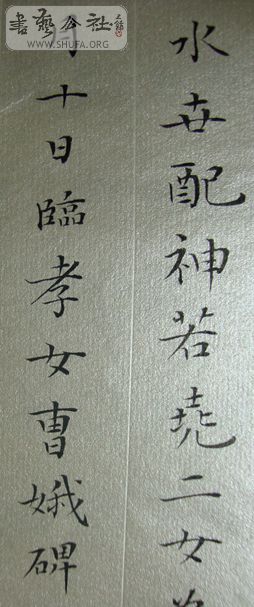 水世配神若堯二女為
月十日臨孝女曹娥碑
書藝公社
WWW.SHUFA.ORG